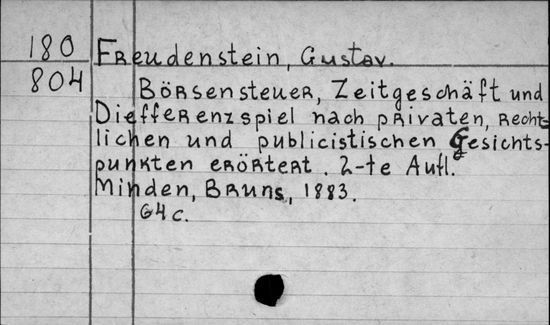 180
804
Freudenstein, Gustav.
Börsensteuer, Zeitgeschäft und
Diefferenzspiel nach privaten, recht-
lichen und publicistischen Gesichts-
punkten erörtert. 2-te Aufl.
Minden, Bruns, 1883.
64 c.